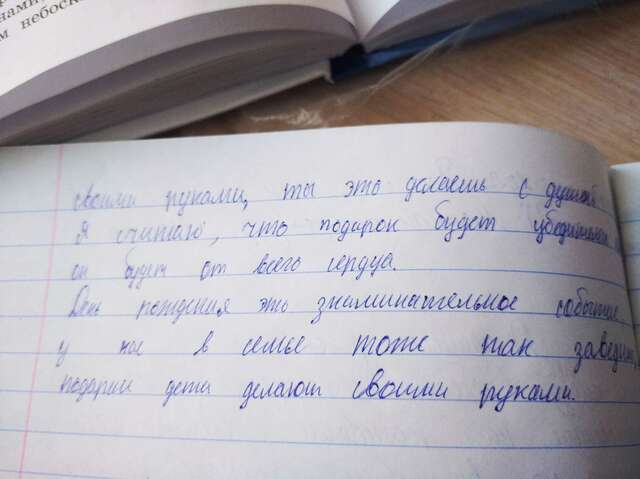 нами
м небоск
своими руками, ты это делаешь с душой.
Я считаю, что подарок будет
он будет от всего сердца.
День рождения это знаминательное событие
у нас в семье тоже так заведено,
подарки дети делают своими руками.